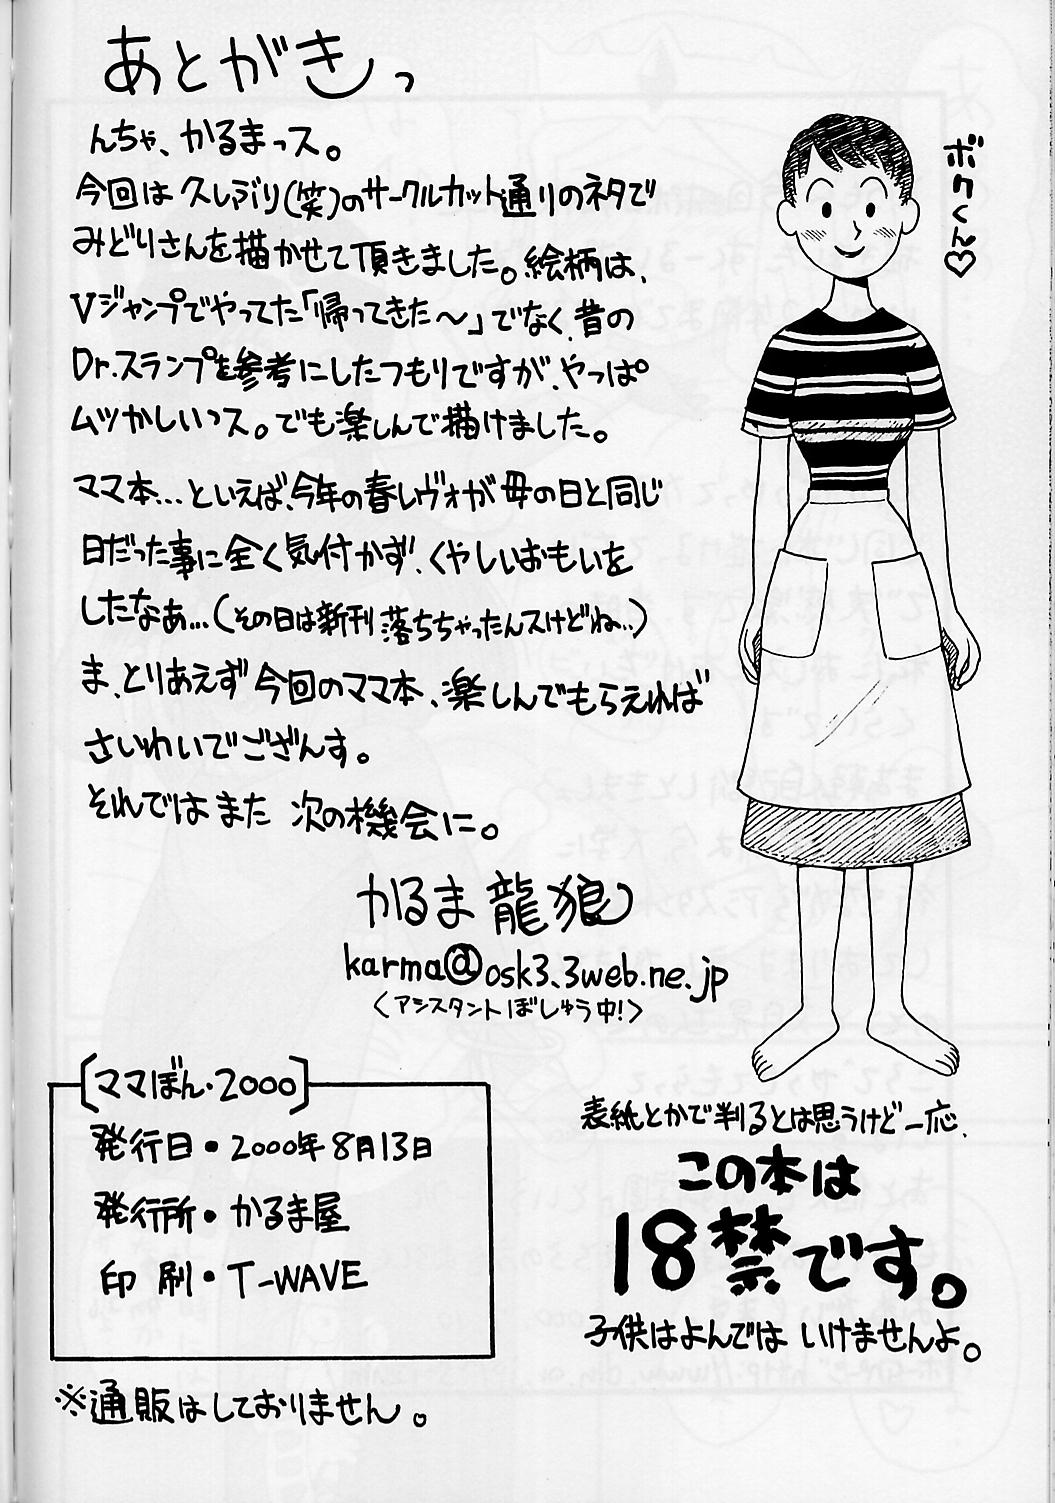 あとがきっ
んちゃ、かるまっス。
今回は久しぶり(笑)のサークルカット通りのネタで
みどりさんを描かせて頂きました。絵柄は、
Vジャンプでやってた「帰ってきた〜」でなく、昔の
Dr.スランプを参考にしたつもりですが、やっぱ
ムツかしいっス。でも楽しんで描けました。
ママ本…といえば、今年の春レヴォが母の日と同じ
日だった事に全く気付かず、くやしいおもいを
したなぁ…(その日は新刊落ちちゃったんスけどね‥)
ま、とりあえず今回のママ本、楽しんでもらえれば
さいわいでござんす。
それではまた 次の機会に。
かるま龍狼
karma@osk3.3web.ne.jp
<アシスタントぼしゅう中!>
ボクくん♡
[ママぼん・2000]
発行日・2000年8月13日
発行所・かるま屋
印刷・T-WAVE
※通販はしておりません。
表紙とかで判るとは思うけど一応、
この本は
18禁です。
子供はよんではいけませんよ。